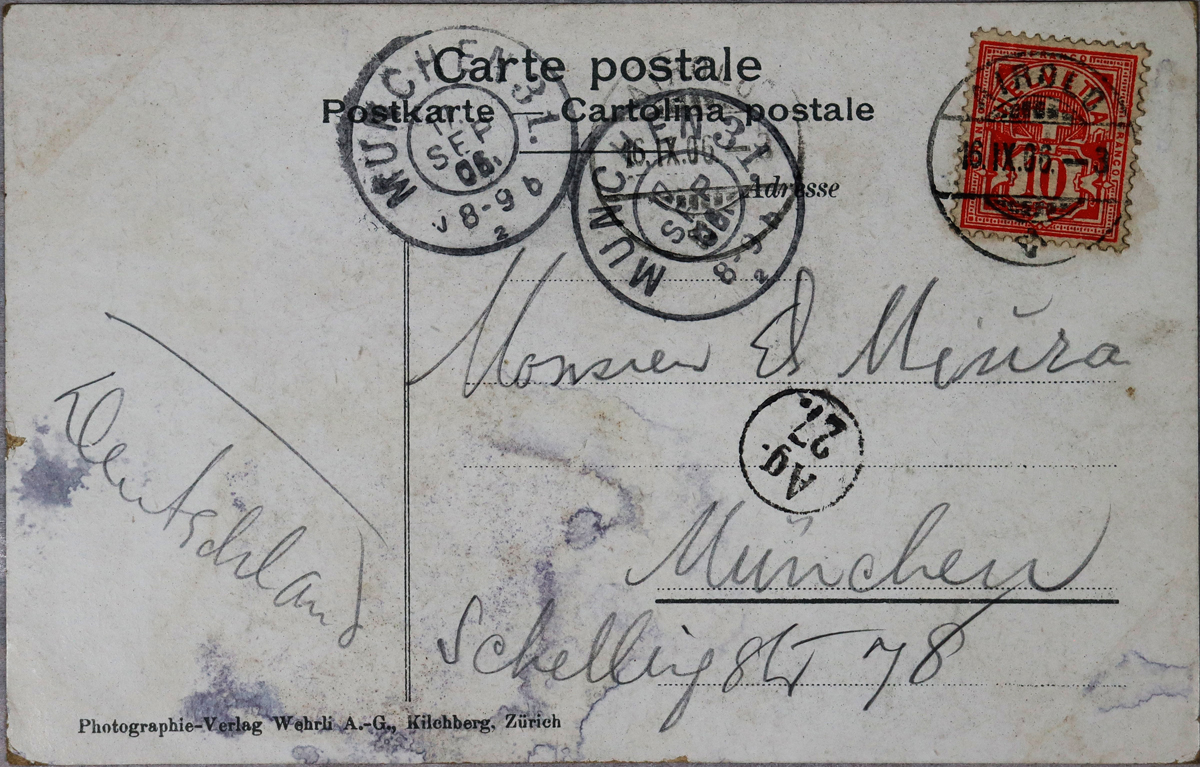 Carte postale
Postkarte — Cartolina postale
Adresse
MUNCHEN 31.
SEP
06.
8-9
2
MUNCHEN 31.
16.IX.06
SEP
06.
8-9
2
16.IX.06.–3
10
Monsieur E Miura
Ag.
27.
München
Schellingstr 78
Deutschland
Photographie-Verlag Wehrli A.-G., Kilchberg, Zürich